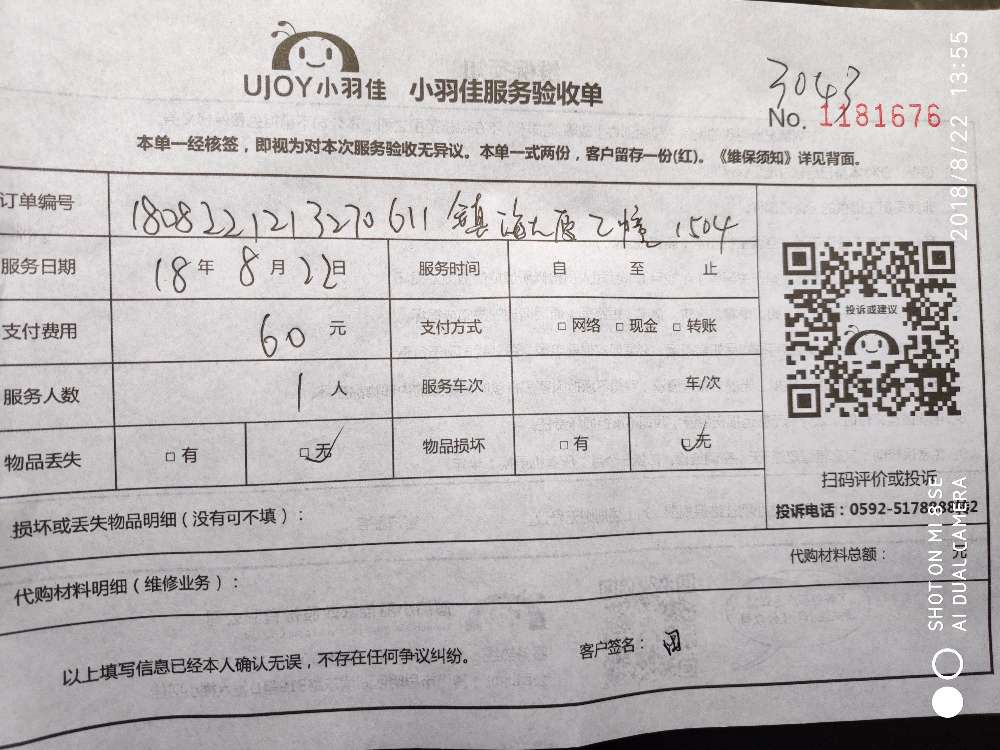 UJOY小羽佳 小羽佳服务验收单
3043
No. 1181676
本单一经核签，即视为对本次服务验收无异议。本单一式两份，客户留存一份(红)。《维保须知》详见背面。
订单编号 180822121327061​1 镇海大厦乙幢 1504
服务日期 18 年 8 月 22 日 服务时间 自 至 止
支付费用 60 元 支付方式 □ 网络 □ 现金 □ 转账
服务人数 1 人 服务车次 车/次
物品丢失 □ 有 □ 无 物品损坏 □ 有 □ 无
投诉或建议
扫码评价或投诉
投诉电话：0592-5178888
损坏或丢失物品明细（没有可不填）：
代购材料明细（维修业务）： 代购材料总额： 元
以上填写信息已经本人确认无误，不存在任何争议纠纷。 客户签名：
2018/8/22 13:55
SHOT ON MI 8 SE
AI DUAL CAMERA